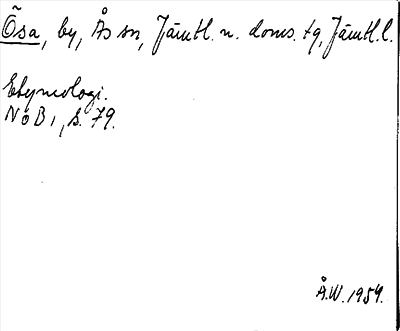 Ösa, by, Ås sn, Jämtl. n. doms. tg, Jämtl. l.
Etymologi.
NoB 1, s. 79.
Å.W. 1954.